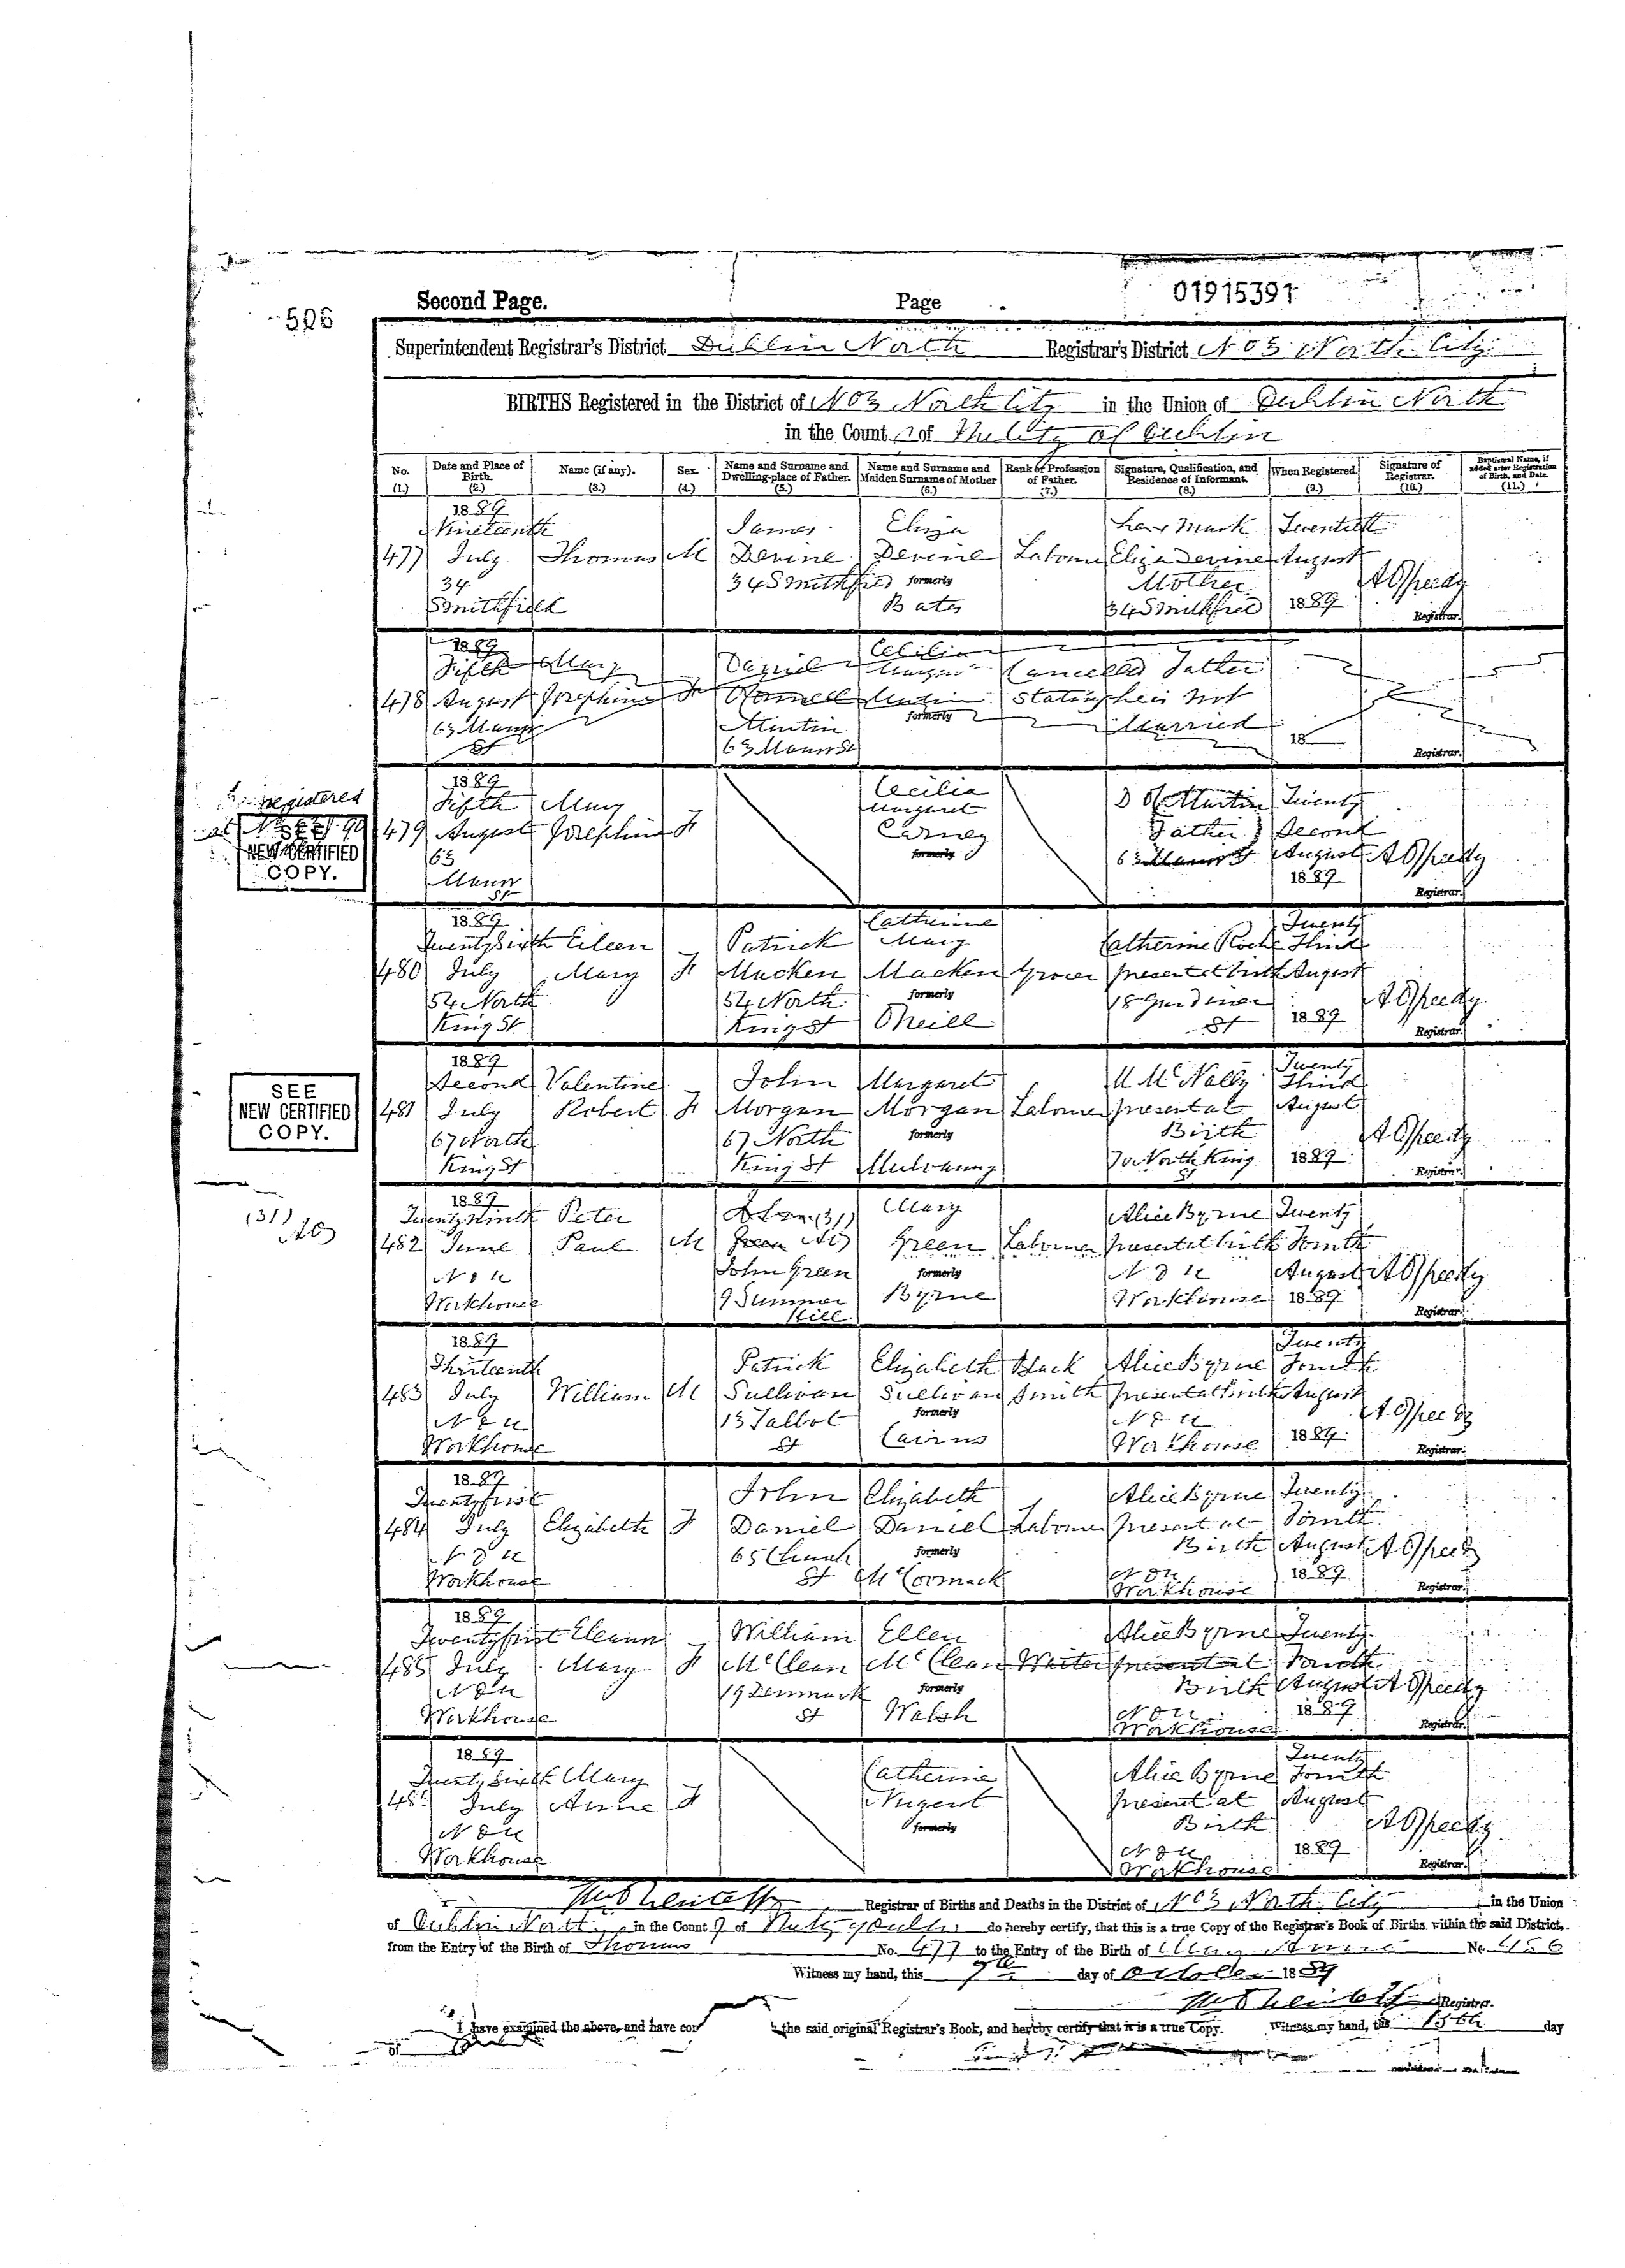 506
Second Page.
Page
01915391
Superintendent Registrar's District Dublin North Registrar's District No 3 North City
BIRTHS Registered in the District of No 3 North City in the Union of Dublin North
in the Count y of The City of Dublin
No. (1.) Date and Place of Birth. (2.) Name (if any). (3.) Sex. (4.) Name and Surname and Dwelling-place of Father. (5.) Name and Surname and Maiden Surname of Mother (6.) Rank or Profession of Father. (7.) Signature, Qualification, and Residence of Informant. (8.) When Registered (9.) Signature of Registrar. (10.) Baptismal Name, if added after Registration of Birth, and Date. (11.)
1889
Nineteenth James Eliza her Mark Twentieth
477 July Thomas M Devine Devine Labourer Eliza Devine August
34 34 Smithfield formerly Mother A Speedy
Smithfield Bates 34 Smithfield 1889 Registrar.
1889 Cecilia
Fifth Mary Daniel Margaret Cancelled Father
478 August Josephine F Martin Stating he is not
63 Mary formerly Married
St Martin 63 Mann St 18 Registrar.
registered
NEW CERTIFIED
COPY.
1889 Cecilia
Fifth Mary Margaret D Martin Twenty
479 August Josephine F Carney Father Second
63 formerly 63 Mann St August A Speedy
Mann St 1889 Registrar.
1889 Catherine Twenty
Twenty Sixth Eileen Patrick Mary Catherine Roche Third
480 July Mary F Macken Macken Grocer present at birth August
54 North 54 North formerly 18 Gardiner A Speedy
King St King St O'Neill St 1889 Registrar.
SEE
NEW CERTIFIED
COPY.
1889 Twenty
Second Valentine John Margaret M McNally Third
481 July Robert F Morgan Morgan Labourer present at August
67 North 67 North formerly Birth A Speedy
King St King St Mulvanny 70 North King St 1889 Registrar.
(31)
1889
Twenty Ninth Peter (31) Mary Alice Byrne Twenty
482 June Paul M Green Labourer present at birth Fourth
N D U John Green formerly N D U August A Speedy
Workhouse 9 Summer Hill Byrne Workhouse 1889 Registrar.
1889 Twenty
Thirteenth Patrick Elizabeth Black Alice Byrne Fourth
483 July William M Sullivan Sullivan Smith present at birth August
N D U 13 Talbot formerly N D U A Speedy
Workhouse St Cairns Workhouse 1889 Registrar.
1889
Twenty first John Elizabeth Alice Byrne Twenty
484 July Elizabeth F Daniel Daniel Labourer present at Fourth
N D U 65 Church formerly Birth August A Speedy
Workhouse St McCormack N D U Workhouse 1889 Registrar.
1889
Twenty first Eleanor William Ellen Alice Byrne Twenty
485 July Mary F McClean McClean Waiter present at Fourth
N D U 19 Denmark formerly Birth August A Speedy
Workhouse St Walsh N D U Workhouse 1889 Registrar.
1889 Twenty
Twenty Sixth Mary Catherine Alice Byrne Fourth
486 July Anne F Nugent present at August
N D U formerly Birth A Speedy
Workhouse N D U Workhouse 1889 Registrar.
Registrar of Births and Deaths in the District of No 3 North City in the Union
of Dublin North in the Count y of do hereby certify, that this is a true Copy of the Registrar's Book of Births within the said District,
from the Entry of the Birth of Thomas No. 477 to the Entry of the Birth of Mary Anne No. 486
Witness my hand, this 9th day of October 1889
Registrar.
I have examined the above, and have the said original Registrar's Book, and hereby certify that it is a true Copy. Witness my hand, this 15th day